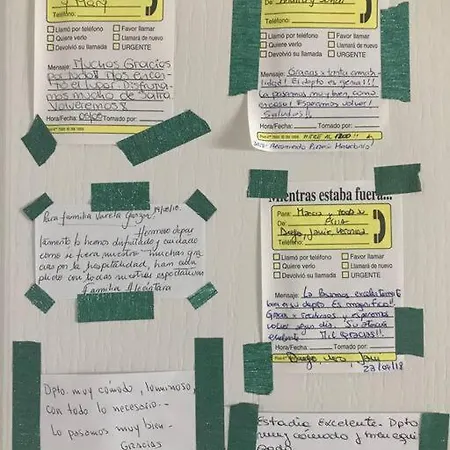 y Mary
Teléfono:
Llamó por teléfono
Favor llamar
Quiere verlo
Llamará de nuevo
Devolvió su llamada
URGENTE
Mensaje: Muchas Gracias
por todo!! Nos encan-
tó el lugar. Disfruta-
mos mucho de
Volveremos!!
Hora/Fecha
Tomado por:
Teléfono:
Llamó por teléfono
Favor llamar
Quiere verlo
Llamará de nuevo
Devolvió su llamada
URGENTE
Mensaje: Gracias x tanta amabi-
lidad! El depto es genial!!!
La pasamos muy bien, como
en casa! Esperamos volver!
Saludos!!
Hora/Fecha
Tomado por:
Para familia Varela
Hermoso depar
tamento lo hemos disfrutado y cuidado
como si fuera nuestro muchas gra
cias por la hospitalidad, han
plido con todas nuestras espectativas
Familia Alcántara
Mientras estaba fuera...
Para: Marcia y todo
De:
Diego, Javier, Verónica
Teléfono:
Llamó por teléfono
Favor llamar
Quiere verlo
Llamará de nuevo
Devolvió su llamada
URGENTE
Mensaje: La pasamos excelente
en su depto. Es magnífico!!
Gracias x recibirnos y esperamos
volver algún día. Su atención
excelente. Mil Gracias!!!
Hora/Fecha
Tomado por:
Diego, Vero, Javi
23/04/18
Dpto. muy cómodo, luminoso,
con todo lo necesario.-
Lo pasamos muy bien-
Gracias
Estadía Excelente. Dpto
muy cómodo y muy equi
pado